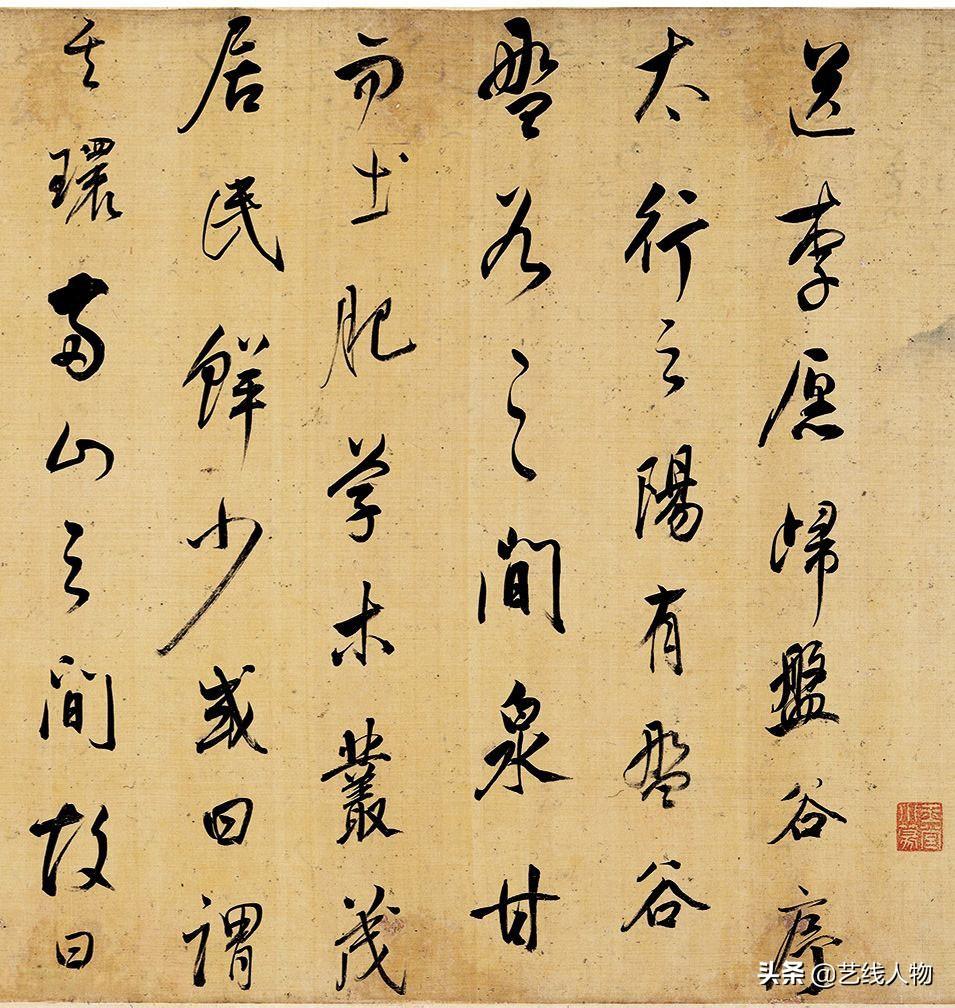 送李愿歸盤谷序
太行之陽有盤谷
盤谷之間泉甘
而土肥草木叢茂
居民鮮少或曰謂
其環兩山之間故曰
头条 @艺线人物